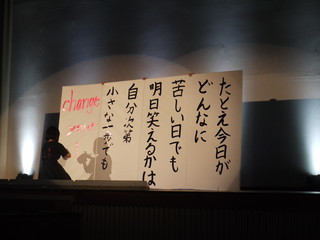 たとえ今日が
どんなに
苦しい日でも
明日笑えるかは
自分次第
小さな一歩でも
change